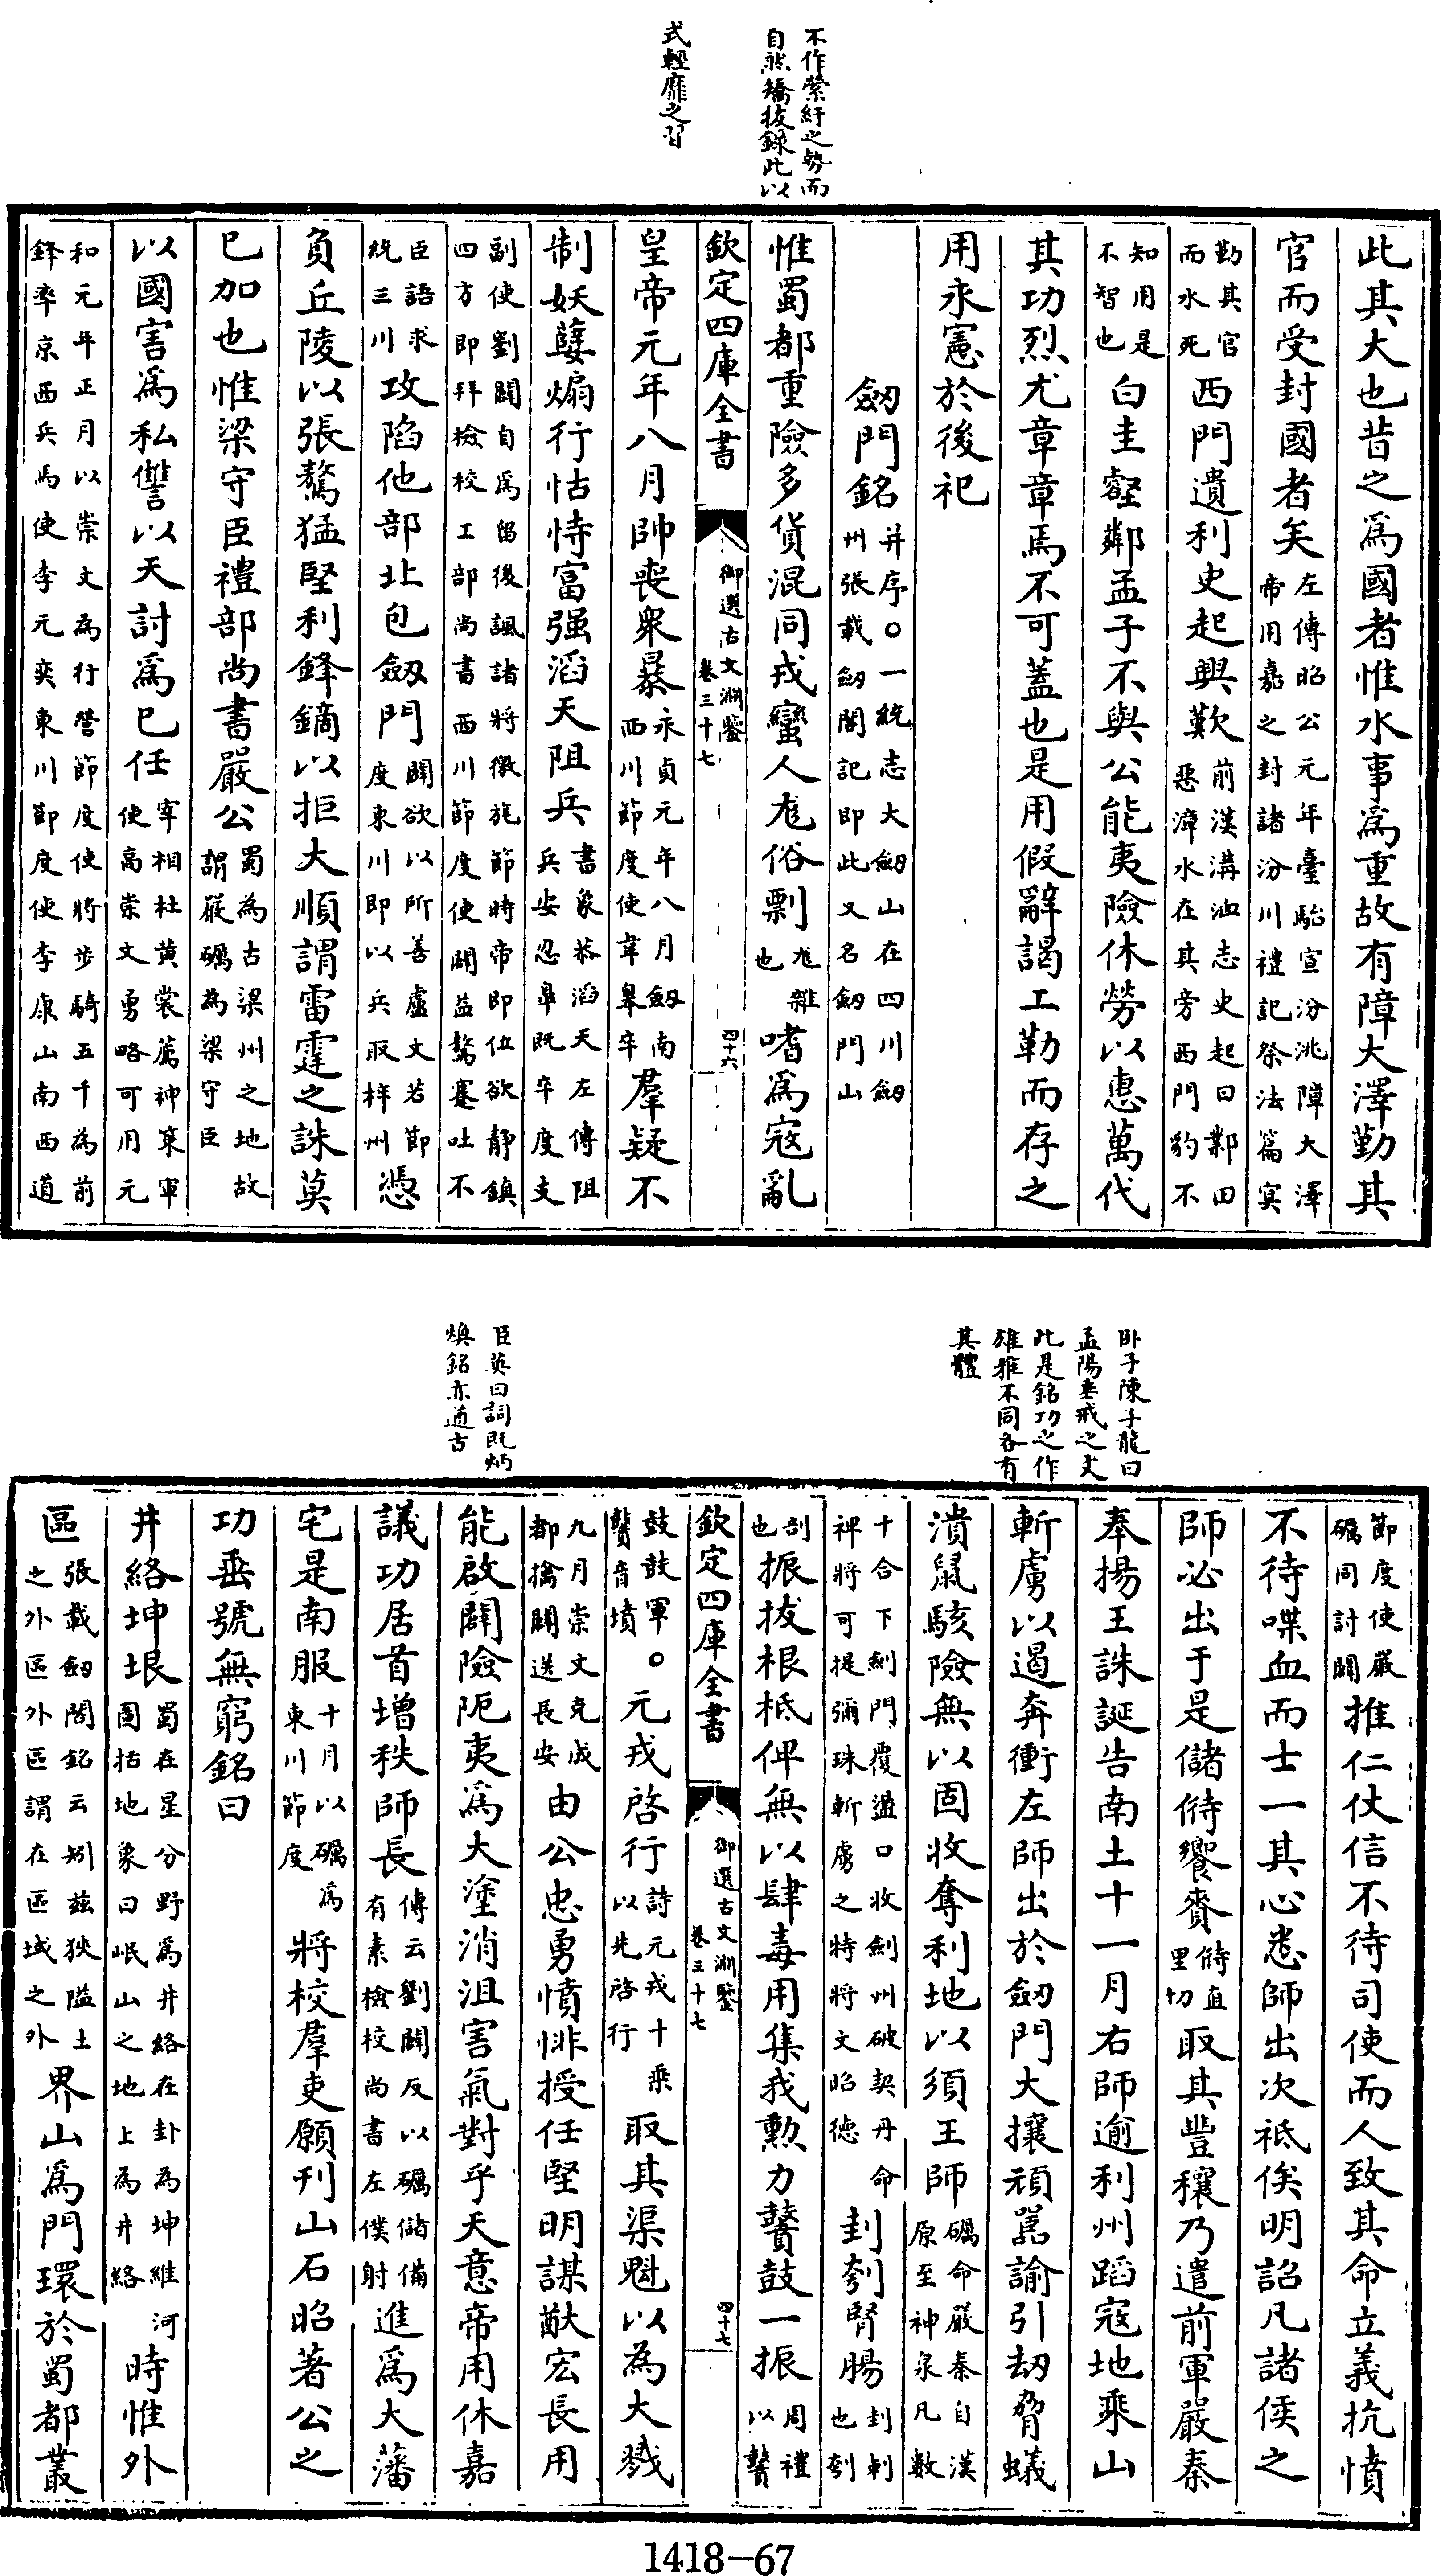 不作縈紆之勢而
自然矯拔錄此以
式輕靡之習
此其大也昔之為國者惟水事為重故有障大澤勤其
官而受封國者矣左傳昭公元年臺駘宣汾洮障大澤帝用嘉之封諸汾川禮記祭法篇冥
勤其官而水死西門遺利史起興歎前漢溝洫志史起曰鄴田惡漳水在其旁西門豹不
知用是不智也白圭壑鄰孟子不與公能夷險休勞以惠萬代
其功烈尤章章焉不可蓋也是用假辭謁工勒而存之
用永憲於後祀
劒門銘并序○一統志大劒山在四川劒州張載劒閣記即此又名劒門山
惟蜀都重險多貨混同戎蠻人尨俗剽尨雜也嗜為寇亂
欽定四庫全書
御選古文淵鑒
卷三十七
四十六
皇帝元年八月帥喪衆暴永貞元年八月劒南西川節度使韋臯卒羣疑不
制妖孽煽行怙恃富强滔天阻兵書象恭滔天左傳阻兵安忍臯既卒度支
副使劉闢自為留後諷諸將徵旄節時帝即位欲靜鎮四方即拜檢校工部尚書西川節度使闢益驁蹇吐不
臣語求統三川攻陷他部北包劒門闢欲以所善盧文若節度東川即以兵取梓州憑
負丘陵以張驁猛堅利鋒鏑以拒大順謂雷霆之誅莫
已加也惟梁守臣禮部尚書嚴公蜀為古梁州之地故謂嚴礪為梁守臣
以國害為私讐以天討為已任宰相杜黄裳薦神策軍使高崇文勇略可用元
和元年正月以崇文為行營節度使將步騎五千為前鋒率京西兵馬使李元奕東川節度使李康山南西道
臥子陳子龍曰
孟陽垂戒之文
此是銘功之作
雄雅不同各有
其體
臣英曰詞既炳
煥銘亦遒古
節度使嚴礪同討闢推仁仗信不待司使而人致其命立義抗憤
不待喋血而士一其心悉師出次祗俟明詔凡諸侯之
師必出于是儲偫饗賚偫直里切取其豐穰乃遣前軍嚴秦
奉揚王誅誕告南土十一月右師逾利州蹈寇地乘山
斬虜以遏奔衝左師出於劒門大攘頑嚚諭引劫脅蟻
潰鼠駭險無以固收奪利地以須王師礪命嚴秦自漢原至神泉凡數
十合下劍門覆盪口收劍州破契丹命裨將可提彌珠斬虜之特將文昭德刲刳腎腸刲刺也刳
剖也振拔根柢俾無以肆毒用集我勲力鼖鼓一振周禮以鼖
欽定四庫全書
御選古文淵鑒
卷三十七
四十七
鼓鼓軍○鼖音墳元戎啓行詩元戎十乘以先啓行取其渠魁以為大戮
九月崇文克成都擒闢送長安由公忠勇憤悱授任堅明謀猷宏長用
能啟闢險阨夷為大塗消沮害氣對乎天意帝用休嘉
議功居首增秩師長傳云劉闢反以礪儲備有素檢校尚書左僕射進為大藩
宅是南服十月以礪為東川節度將校羣吏願刊山石昭著公之
功垂號無窮銘曰
井絡坤垠蜀在星分野為井絡在卦為坤維河圖括地象曰岷山之地上為井絡時惟外
區張載劒閣銘云矧茲狹隘土之外區外區謂在區域之外界山為門環於蜀都叢
1418-67